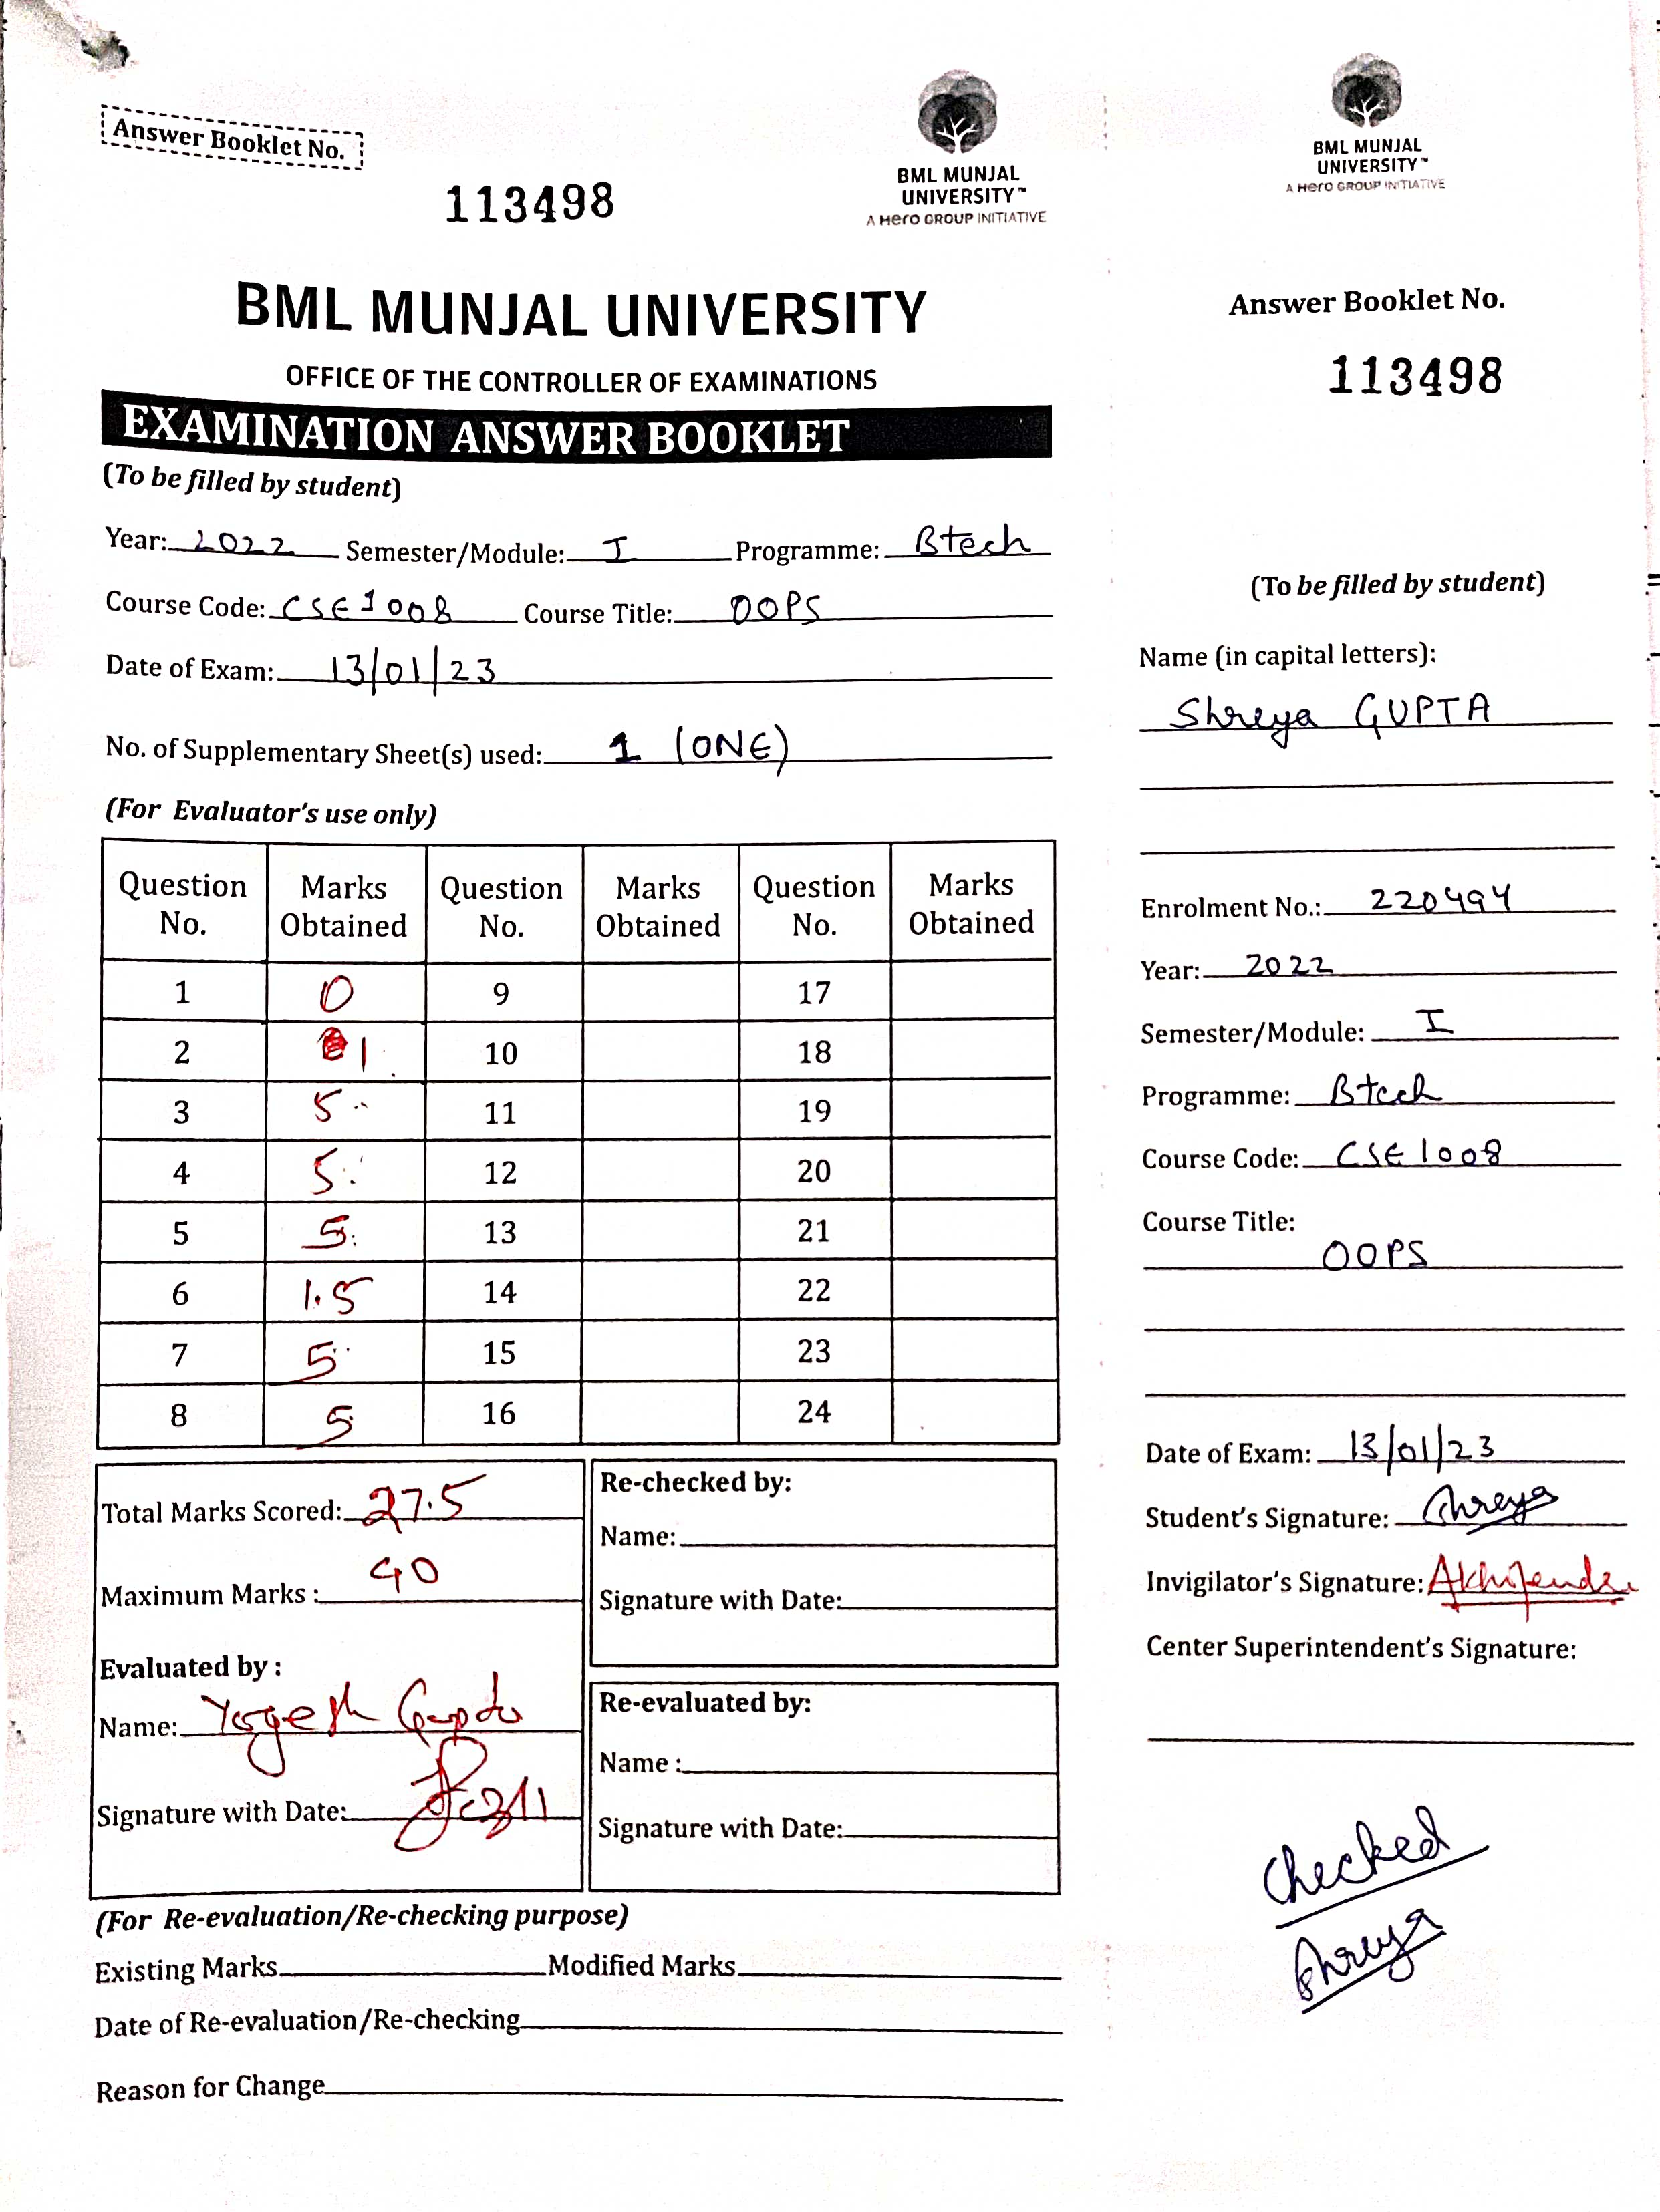 Answer Booklet No.
113498
BML MUNJAL
UNIVERSITY™
A Hero GROUP INITIATIVE
BML MUNJAL UNIVERSITY
OFFICE OF THE CONTROLLER OF EXAMINATIONS
EXAMINATION ANSWER BOOKLET
(To be filled by student)
Year: 2022 Semester/Module: I Programme: Btech
Course Code: CSE1008 Course Title: OOPS
Date of Exam: 13/01/23
No. of Supplementary Sheet(s) used: 1 (ONE)
(For Evaluator's use only)
Question No. Marks Obtained Question No. Marks Obtained Question No. Marks Obtained
1 0 9 17
2 1 10 18
3 5 11 19
4 5 12 20
5 5 13 21
6 1.5 14 22
7 5 15 23
8 5 16 24
Total Marks Scored: 27.5
Maximum Marks : 40
Evaluated by :
Name: Yogesh Gupta
Signature with Date:
Re-checked by:
Name:
Signature with Date:
Re-evaluated by:
Name :
Signature with Date:
(For Re-evaluation/Re-checking purpose)
Existing Marks Modified Marks
Date of Re-evaluation/Re-checking
Reason for Change
BML MUNJAL
UNIVERSITY™
A Hero GROUP INITIATIVE
Answer Booklet No.
113498
(To be filled by student)
Name (in capital letters):
Shreya GUPTA
Enrolment No.: 220494
Year: 2022
Semester/Module: I
Programme: Btech
Course Code: CSE1008
Course Title:
OOPS
Date of Exam: 13/01/23
Student's Signature: Shreya
Invigilator's Signature:
Center Superintendent's Signature:
Checked
Shreya